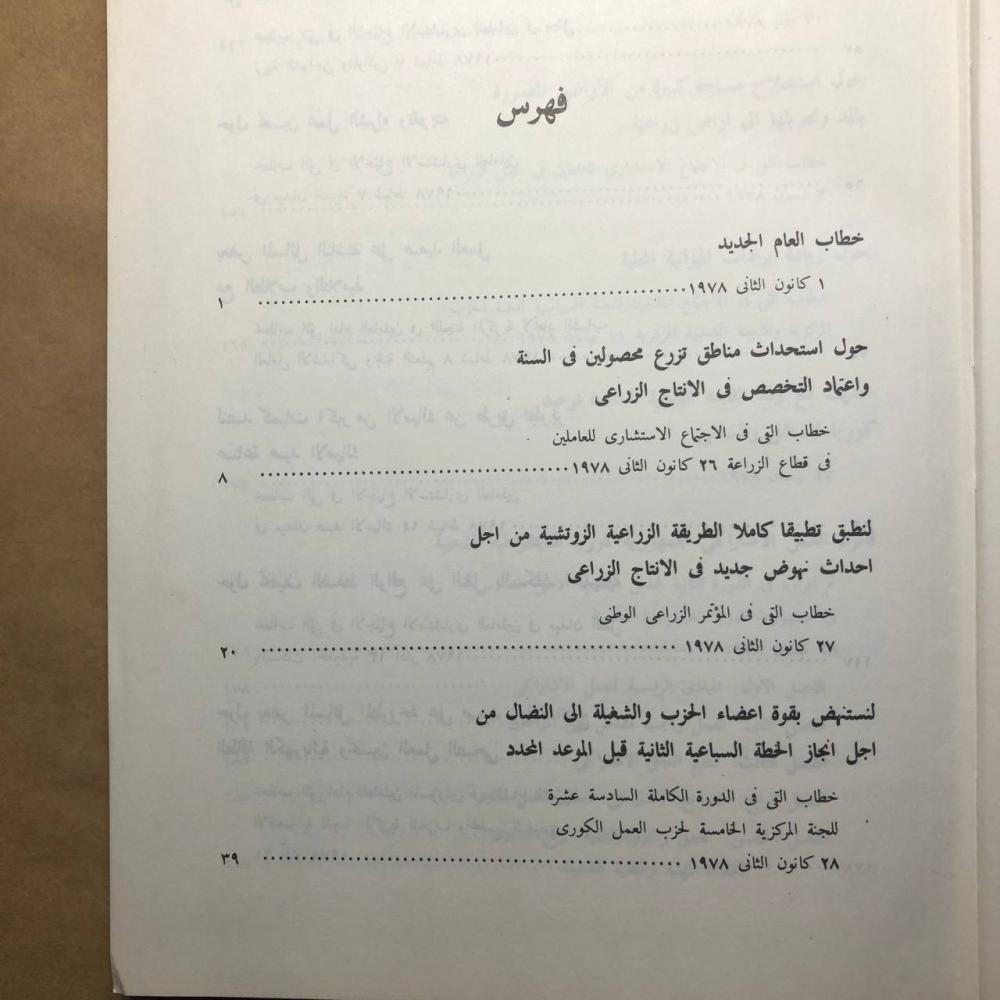 فهرس
خطاب العام الجديد
١ كانون الثانى ١٩٧٨ ........................................ ١
حول استحداث مناطق تزرع محصولين فى السنة
واعتماد التخصص فى الانتاج الزراعى
خطاب القى فى الاجتماع الاستشارى للعاملين
فى قطاع الزراعة ٢٦ كانون الثانى ١٩٧٨ ........................................ ٨
لنطبق تطبيقا كاملا الطريقة الزراعية الزوتشية من اجل
احداث نهوض جديد فى الانتاج الزراعى
خطاب القى فى المؤتمر الزراعى الوطنى
٢٧ كانون الثانى ١٩٧٨ ........................................ ٢٠
لنستنهض بقوة اعضاء الحزب والشغيلة الى النضال من
اجل انجاز الخطة السباعية الثانية قبل الموعد المحدد
خطاب القى فى الدورة الكاملة السادسة عشرة
للجنة المركزية الخامسة لحزب العمل الكورى
٢٨ كانون الثانى ١٩٧٨ ........................................ ٣٩